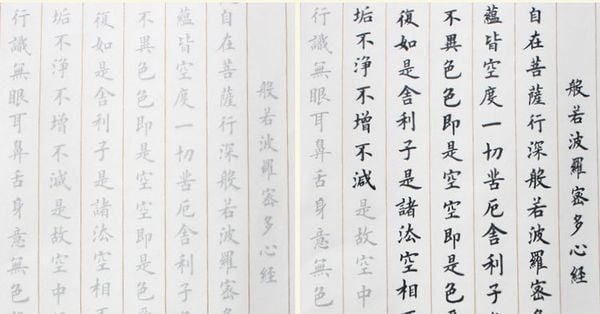 般若波羅蜜多心經
自在菩薩行深般若波羅蜜
蘊皆空度一切苦厄舍利子
不異色色即是空空即是色
復如是舍利子是諸法空相
垢不淨不增不減是故空中
行識無眼耳鼻舌身意無色
般若波羅蜜多心經
自在菩薩行深般若波羅蜜
蘊皆空度一切苦厄舍利子
不異色色即是空空即是色
復如是舍利子是諸法空相
垢不淨不增不減是故空中
行識無眼耳鼻舌身意無色